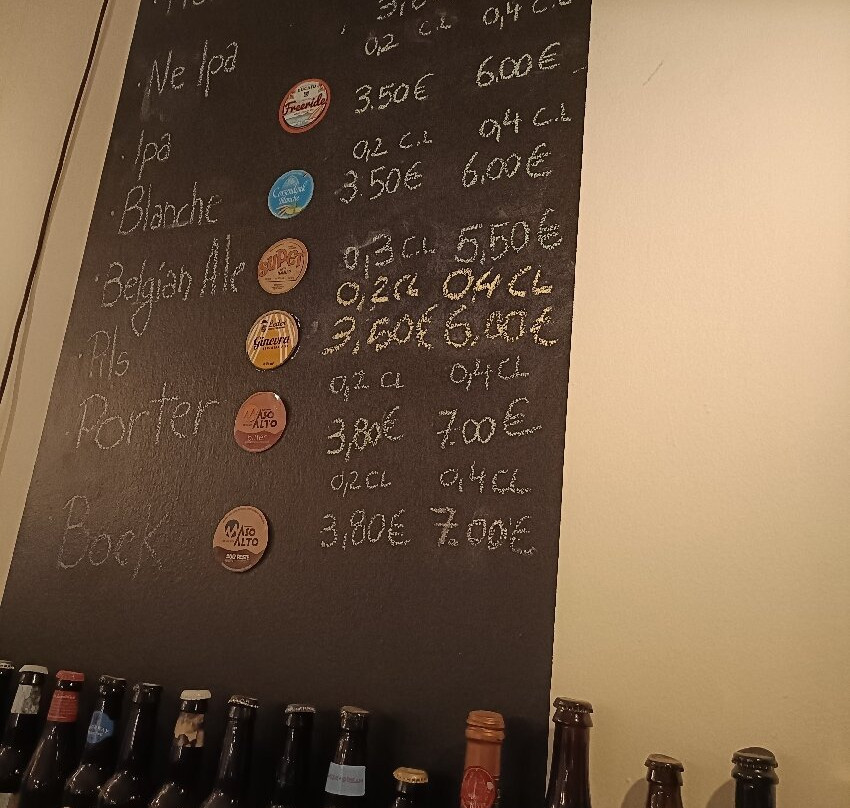 0,2 C.L 0,4 C.L
Ne Ipa
Freeride
3.50€ 6.00€
Ipa
0,2 C.L 0,4 C.L
3.50€ 6,00€
Blanche
Blanche
0,3 C.L 5,50€
Belgian Ale
Super
0,2 CL 0,4 CL
Ginevra
3,50€ 6.00€
Pils
0,2 CL 0,4 CL
Porter
MASO
ALTO
3,80€ 7.00€
0,2 CL 0,4 CL
Bock
MASO
ALTO
3,80€ 7.00€